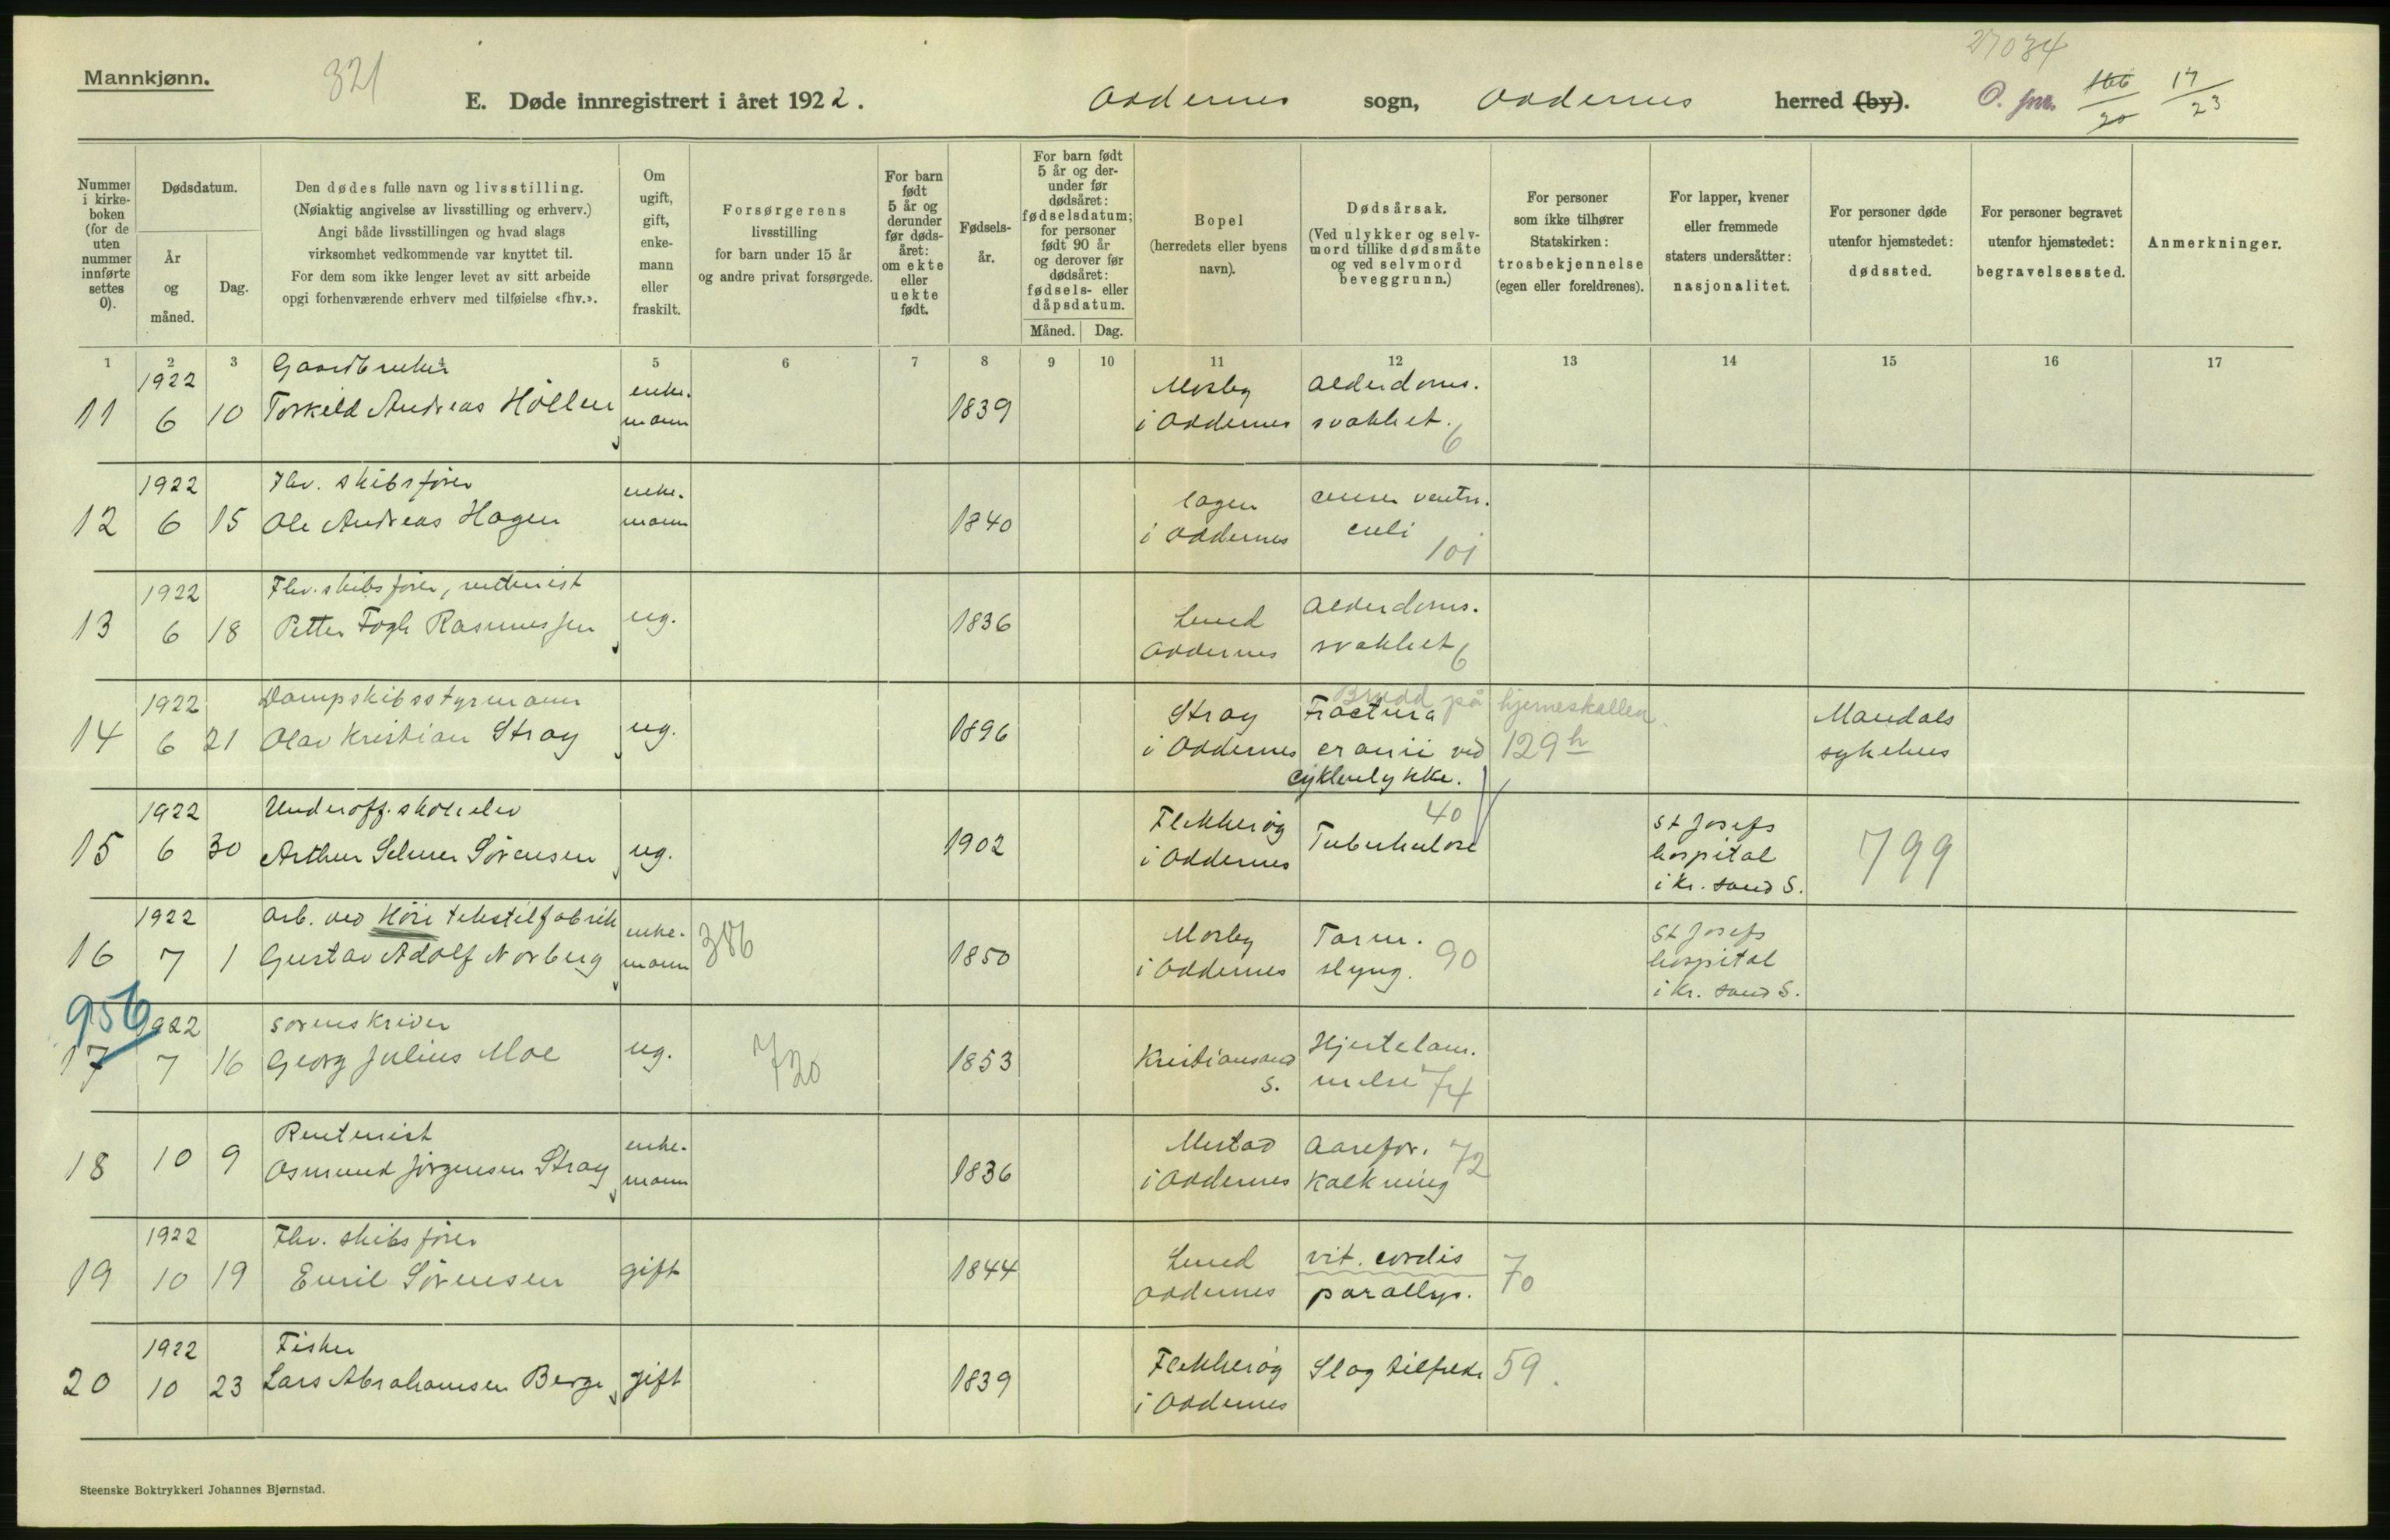 Mannkjønn.
321
E. Døde innregistrert i året 1922.
Oddernes sogn, Oddernes herred (by).
27034
O. jnr. 166/20 17/23
Nummer i kirkeboken (for de uten nummer innførte settes 0).
Dødsdatum.
År og måned.
Dag.
Den dødes fulle navn og livsstilling.
(Nøiaktig angivelse av livsstilling og erhverv.)
Angi både livsstillingen og hvad slags
virksomhet vedkommende var knyttet til.
For dem som ikke lenger levet av sitt arbeide
opgi forhenværende erhverv med tilføielse «fhv.».
Om ugift, gift, enkemann eller fraskilt.
Forsørgerens
livsstilling
for barn under 15 år
og andre privat forsørgede.
For barn født 5 år og derunder før dødsåret: om ekte eller uekte født.
Fødselsår.
For barn født 5 år og derunder før dødsåret: fødselsdatum; for personer født 90 år og derover før dødsåret: fødsels- eller dåpsdatum.
Måned. Dag.
Bopel
(herredets eller byens
navn).
Dødsårsak.
(Ved ulykker og selvmord tillike dødsmåte og ved selvmord beveggrunn.)
For personer
som ikke tilhører
Statskirken:
trosbekjennelse
(egen eller foreldrenes).
For lapper, kvener
eller fremmede
staters undersåtter:
nasjonalitet.
For personer døde
utenfor hjemstedet:
dødssted.
For personer begravet
utenfor hjemstedet:
begravelsessted.
Anmerkninger.
1 2 3 4 5 6 7 8 9 10 11 12 13 14 15 16 17
1922 Gaardbruker enke- Mosby Alderdoms-
11 6 10 Torkild Andreas Höllen mann 1839 i Oddernes svakhet. 6
1922 Fhv. skibsfører enke- cancer ventri-
12 6 15 Ole Andreas Hagen mann 1840 i Oddernes culi 101
1922 Fhv. skibsfører, rentenist Alderdoms-
13 6 18 Petter Fogh Rasmussen ug. 1836 Lund Oddernes svakhet 6
1922 Dampskibsstyrmann Stray Fractura Brudd på hjerneskallen. Mandals
14 6 21 Olav Kristian Stray ug. 1896 i Oddernes cranii ved 129 h sykehus
cykleulykke.
1922 Underoff. skoleelev Flekkerøy 40 St Josefs
15 6 30 Arthur Selmer Sørensen ug. 1902 i Oddernes Tuberkulose hospital 799
i Kr. sand S.
1922 Arb. ved Höie tekstilfabrik enke- 386 Mosby Tarm- St Josefs
16 7 1 Gustav Adolf Norberg mann 1850 i Oddernes slyng. 90 hospital
i Kr. sand S.
956
1922 Sorenskriver Hjertelam-
17 7 16 Georg Julius Moe ug. 720 1853 Kristiansand S. melse 74
Rentenist enke- Mestad Aarefor- 72
18 10 9 Osmund Jørgensen Stray mann 1836 i Oddernes kalkning
1922 Fhv. skibsfører Lund vit. cordis
19 10 19 Emil Sørensen gift 1844 Oddernes paralys. 70
1922 Fisker Flekkerøy
20 10 23 Lars Abrahamsen Berge gift 1839 i Oddernes Slagtilfelde 59.
Steenske Boktrykkeri Johannes Bjørnstad.